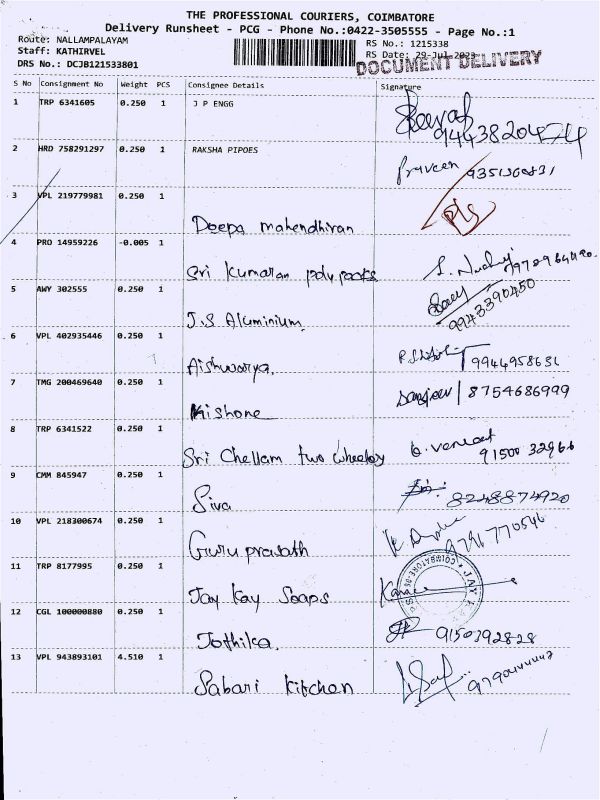 THE PROFESSIONAL COURIERS, COIMBATORE
Delivery Runsheet - PCG - Phone No.:0422-3505555 - Page No.:1
Route: NALLAMPALAYAM
Staff: KATHIRVEL
DRS No.: DCJB121533801
RS No.: 1215338
RS Date: 29-Jul-2023
DOCUMENT DELIVERY
S No Consignment No Weight PCS Consignee Details Signature
1 TRP 6341605 0.250 1 J P ENGG
9443820474
2 HRD 758291297 0.250 1 RAKSHA PIPOES
Praveen 9351360831
3 VPL 219779981 0.250 1
Deepa mahendhiran
4 PRO 14959226 -0.005 1
Sri kumaran poly packs
5 AWY 302555 0.250 1
J.S Aluminium 9943390450
6 VPL 402935446 0.250 1
Aishwarya. 9944958631
7 TMG 200469640 0.250 1
Kishone Sanjeev 8754686999
8 TRP 6341522 0.250 1
Sri Chellam two wheeler G. Venkat 91500 32966
9 CMM 845947 0.250 1
Siva 8248874920
10 VPL 218300674 0.250 1
Guru prasath 9791 770546
11 TRP 8177995 0.250 1
Jay Kay Soaps
12 CGL 100000880 0.250 1
Jothika. 9150392828
13 VPL 943893101 4.510 1
Sabari kitchen